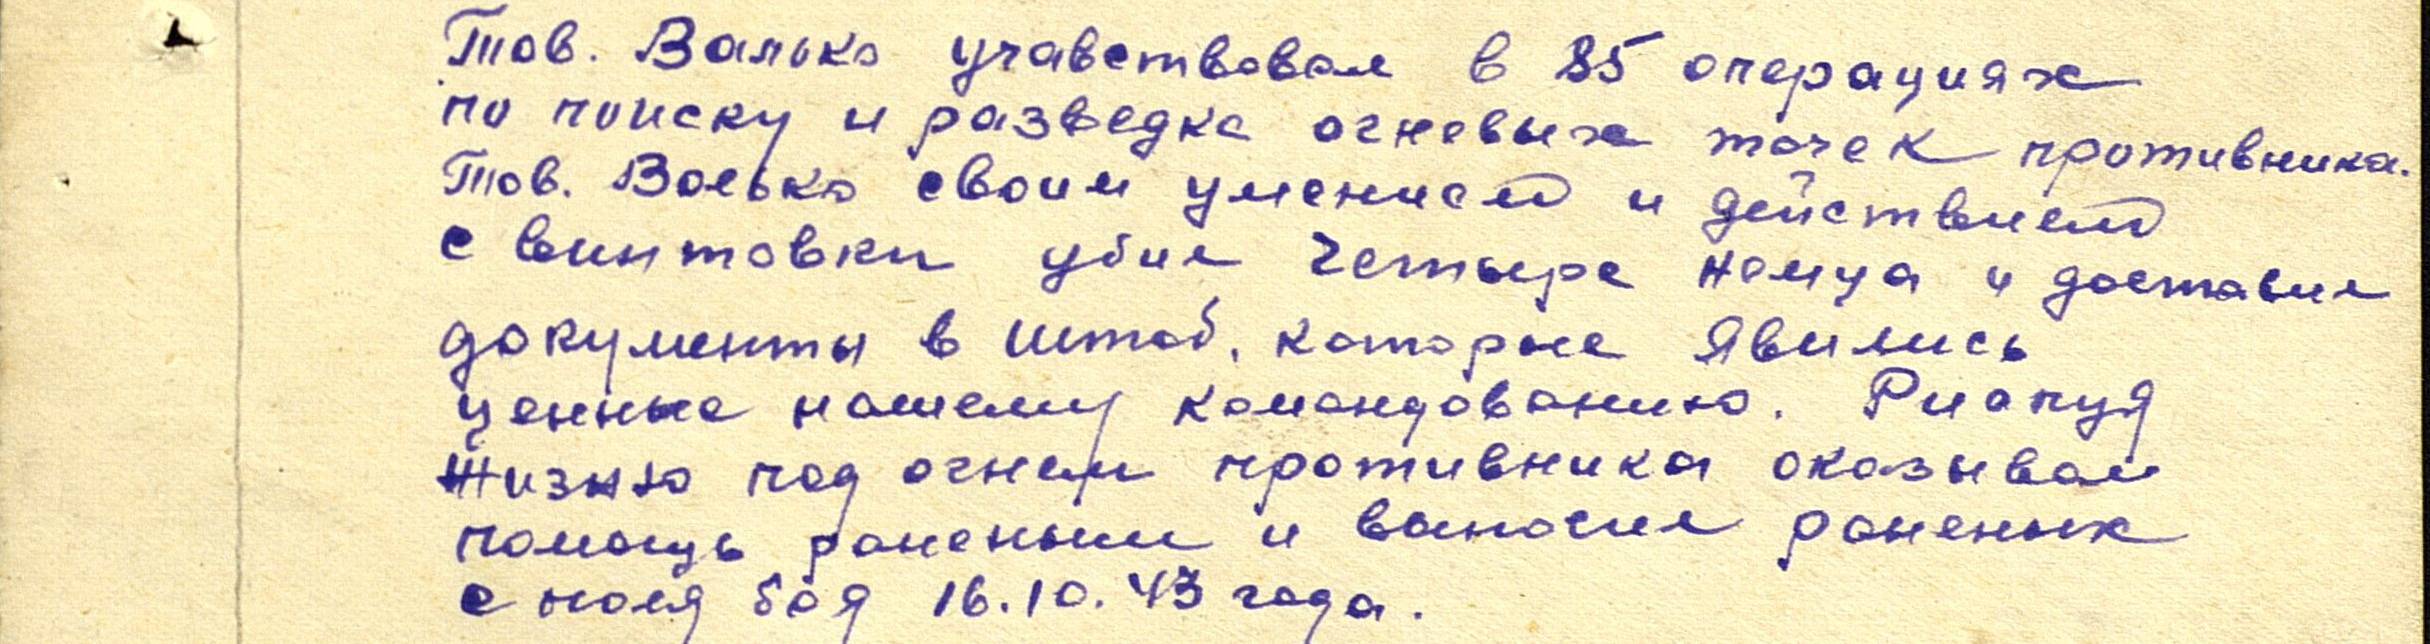 Тов. Валько учавствовал в 85 операциях
по поиску и разведке огневых точек противника.
Тов. Валько своим умением и действием
с винтовки убил четыре немца и доставил
документы в штаб, которые явились
ценные нашему командованию. Рискуя
жизню под огнем противника оказывал
помощь раненым и выносил раненых
с поля боя 16.10.43 года.